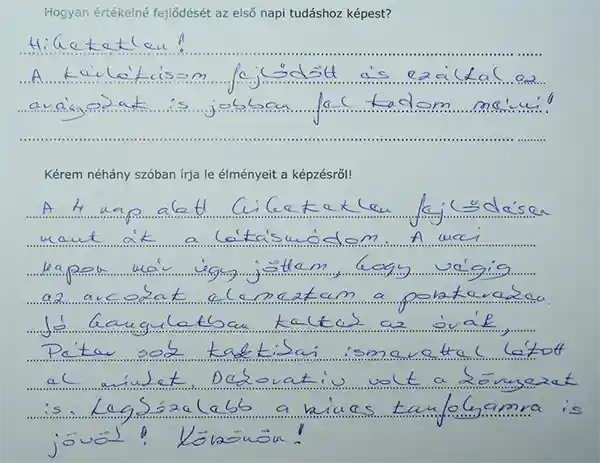 Hogyan értékelné fejlődését az első napi tudáshoz képest?
Hihetetlen!
A térlátásom fejlődött és ezáltal az
arányokat is jobban fel tudom mérni!
Kérem néhány szóban írja le élményeit a képzésről!
A 4 nap alatt hihetetlen fejlődésen
ment át a látásmódom. A mai
napon már úgy jöttem, hogy végig
az arcokat elemeztem a posztereken.
Jó hangulatban teltek az órák,
Péter sok taktikai ismerettel látott
el minket. Dekoratív volt a környezet
is. Legközelebb a színes tanfolyamra is
jövök! Köszönöm!